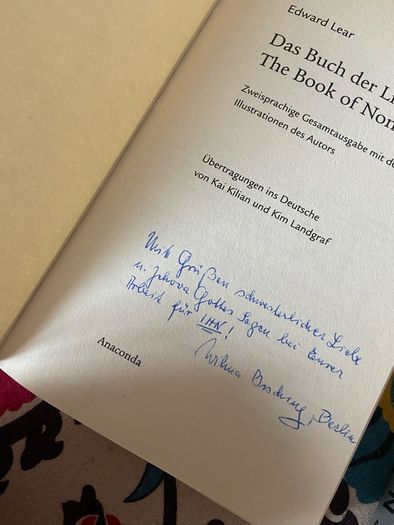 Edward Lear
Das Buch der
The Book of
Zweisprachige Gesamtausgabe mit
Illustrationen des Autors
Übertragungen ins Deutsche
von Kai Kilian und Kim Landgraf
Mit Grüßen schwesterlicher Liebe
u. Jehova Gottes Segen bei Eurer
Arbeit für IHN!
Wilma Berlin
Anaconda